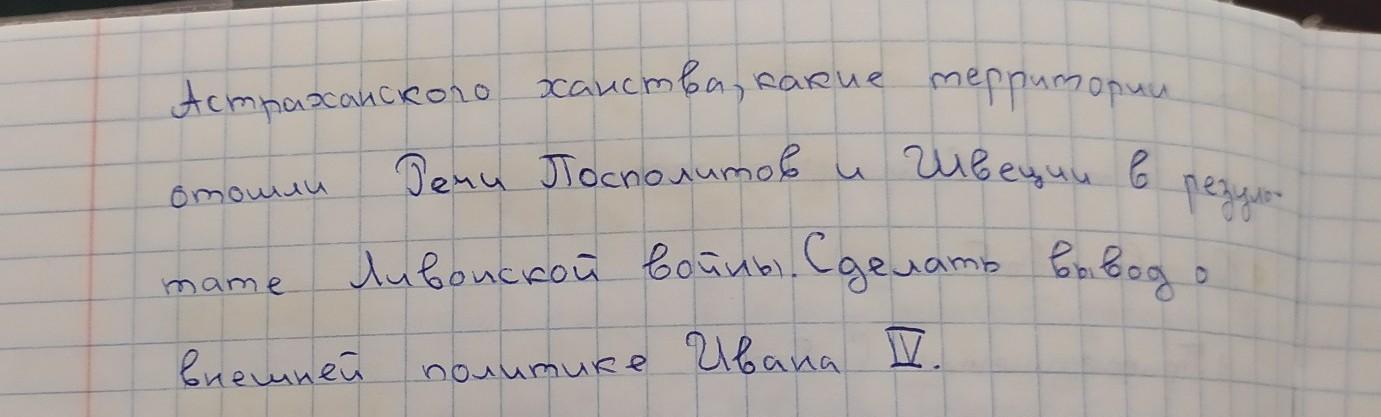 Астраханского ханства, какие территории
отошли Речи Посполитов и Швеции в резуль-
тате Ливонской войны. Сделать вывод о
внешней политике Ивана IV.